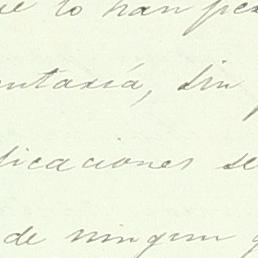 ue lo han pes
entaria, sin
ficaciones se
de ningun g